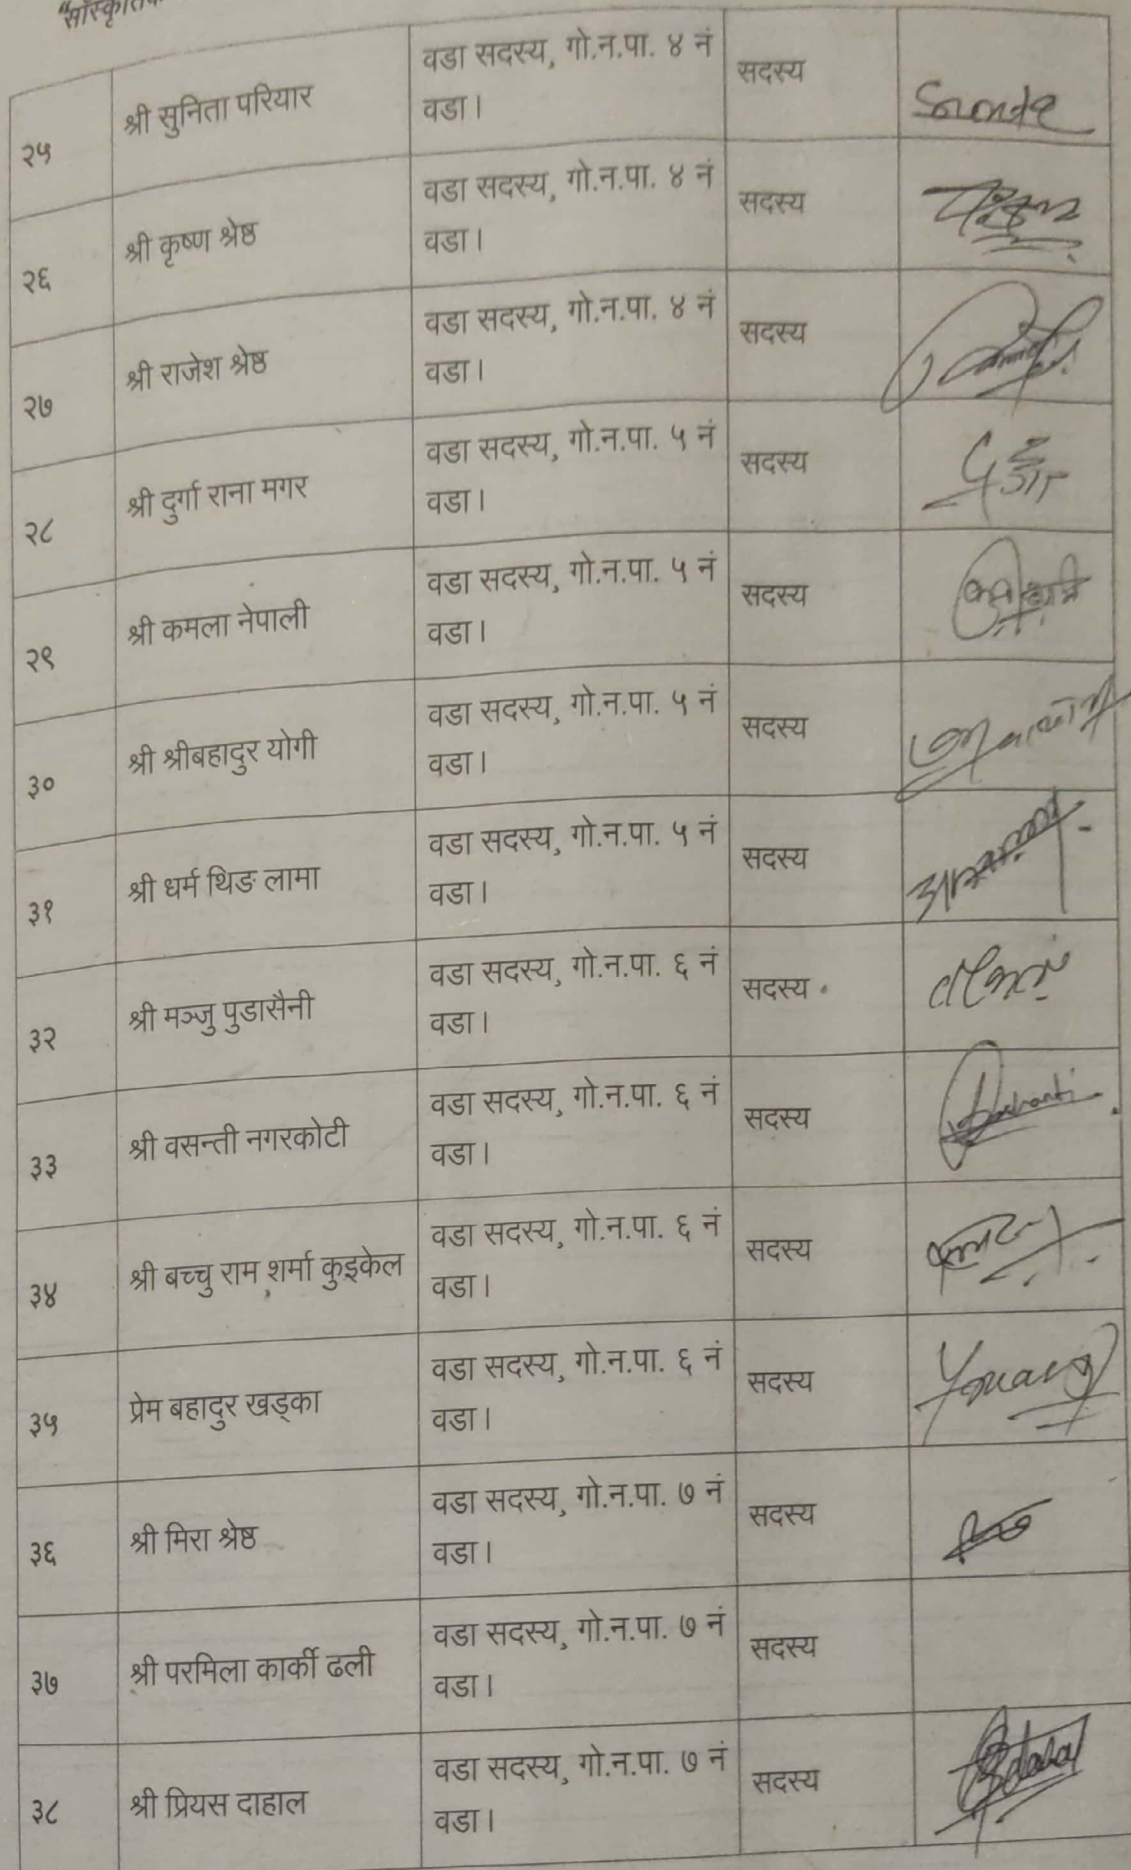 २५ श्री सुनिता परियार वडा सदस्य, गो.न.पा. ४ नं सदस्य
वडा।
२६ श्री कृष्ण श्रेष्ठ वडा सदस्य, गो.न.पा. ४ नं सदस्य
वडा।
२७ श्री राजेश श्रेष्ठ वडा सदस्य, गो.न.पा. ४ नं सदस्य
वडा।
२८ श्री दुर्गा राना मगर वडा सदस्य, गो.न.पा. ५ नं सदस्य
वडा।
२९ श्री कमला नेपाली वडा सदस्य, गो.न.पा. ५ नं सदस्य
वडा।
३० श्री श्रीबहादुर योगी वडा सदस्य, गो.न.पा. ५ नं सदस्य
वडा।
३१ श्री धर्म थिङ लामा वडा सदस्य, गो.न.पा. ५ नं सदस्य
वडा।
३२ श्री मञ्जु पुडासैनी वडा सदस्य, गो.न.पा. ६ नं सदस्य
वडा।
३३ श्री वसन्ती नगरकोटी वडा सदस्य, गो.न.पा. ६ नं सदस्य
वडा।
३४ श्री बच्चु राम शर्मा कुइकेल वडा सदस्य, गो.न.पा. ६ नं सदस्य
वडा।
३५ प्रेम बहादुर खड्का वडा सदस्य, गो.न.पा. ६ नं सदस्य
वडा।
३६ श्री मिरा श्रेष्ठ वडा सदस्य, गो.न.पा. ७ नं सदस्य
वडा।
३७ श्री परमिला कार्की ढली वडा सदस्य, गो.न.पा. ७ नं सदस्य
वडा।
३८ श्री प्रियस दाहाल वडा सदस्य, गो.न.पा. ७ नं सदस्य
वडा।